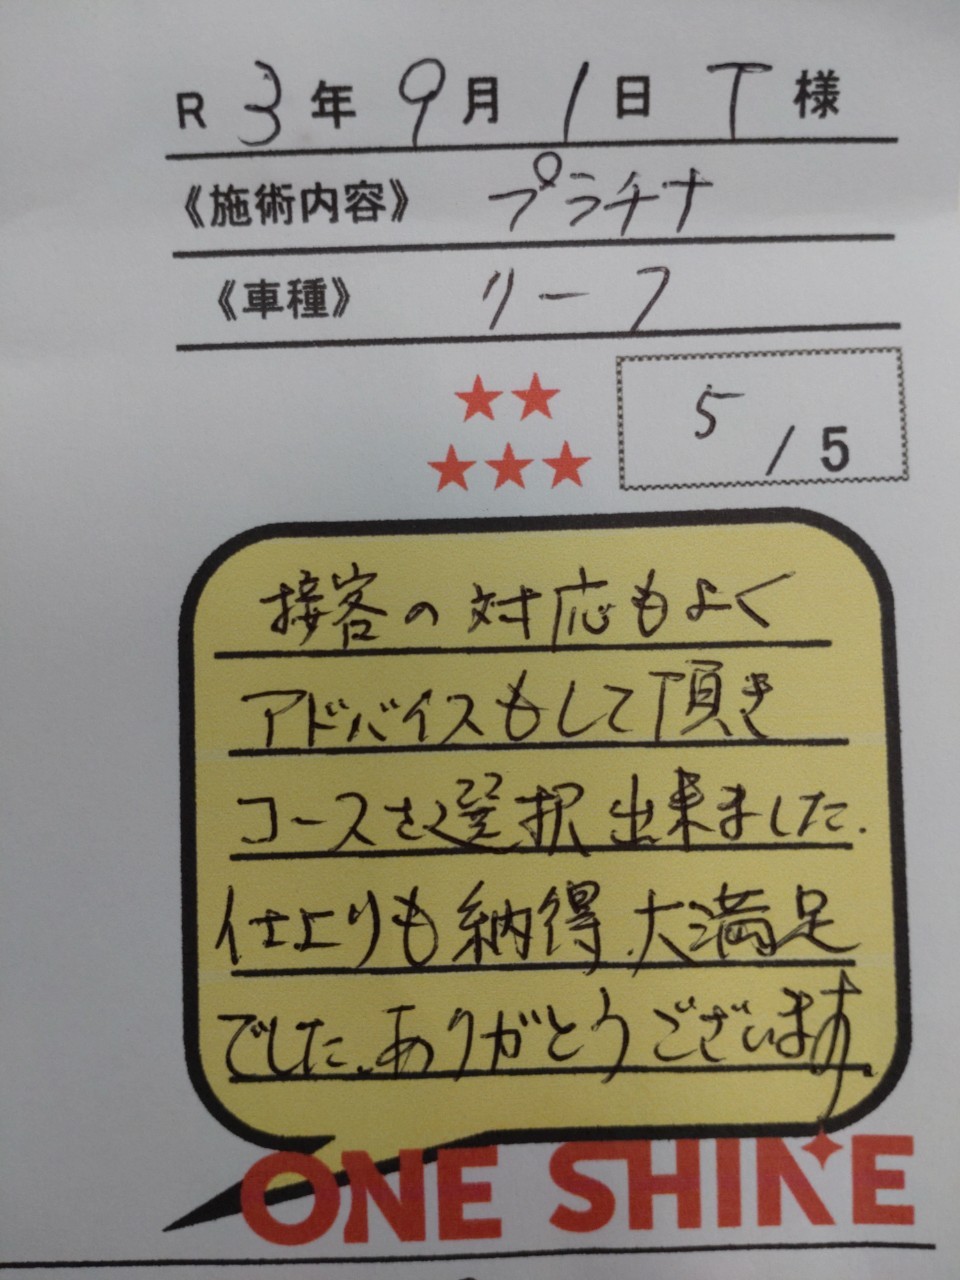 R 3年 9月 1日 T 様
《施術内容》 プラチナ
《車種》 リーフ
5/5
接客の対応もよく
アドバイスもして頂き
コースを選択出来ました.
仕上りも納得.大満足
でした.ありがとうございます.
ONE SHINE